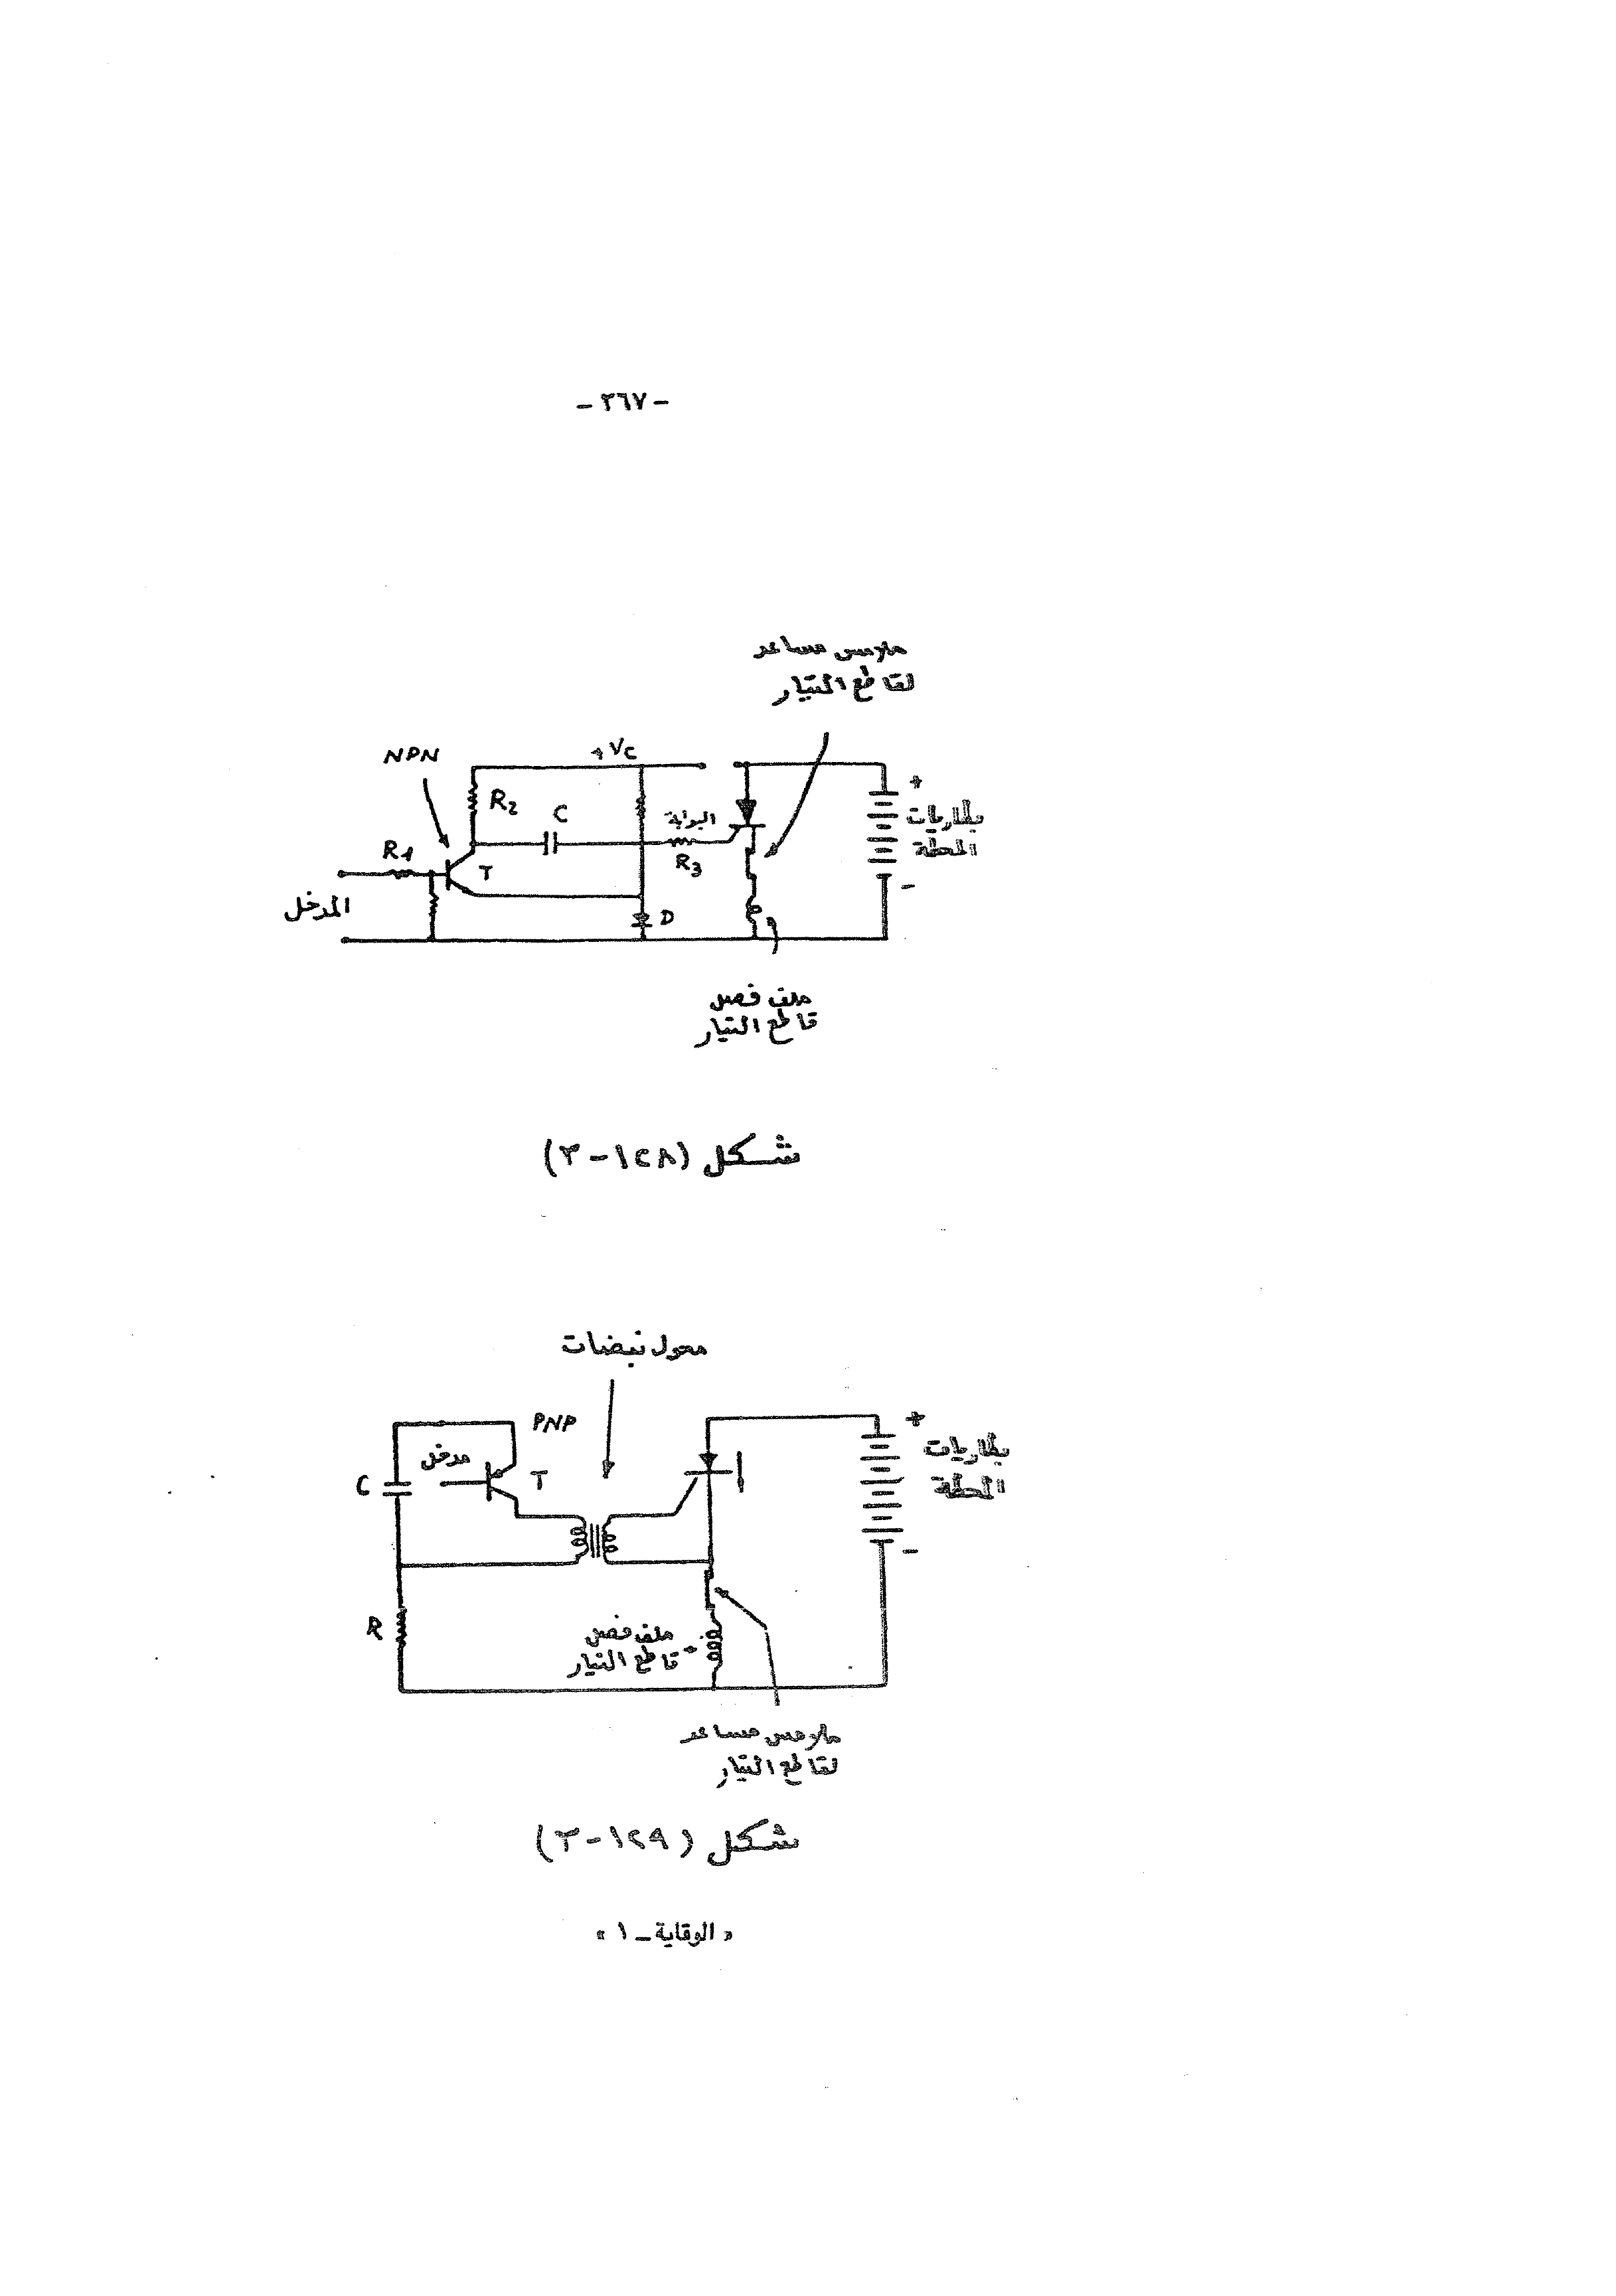 - ٣٦٧ -
ملامس مساعد
لقاطع التيار
NPN
+ Vc
R2
C
البوابة
R3
R1
T
D
المدخل
+
بطاريات
المحطة
-
ملف فصل
قاطع التيار
شكل (١٢٨-٣)
محول نبضات
PNP
مدخل
T
C
R
+
بطاريات
المحطة
-
ملف فصل
قاطع التيار
ملامس مساعد
لقاطع التيار
شكل (١٢٩-٣)
« الوقاية - ١ »